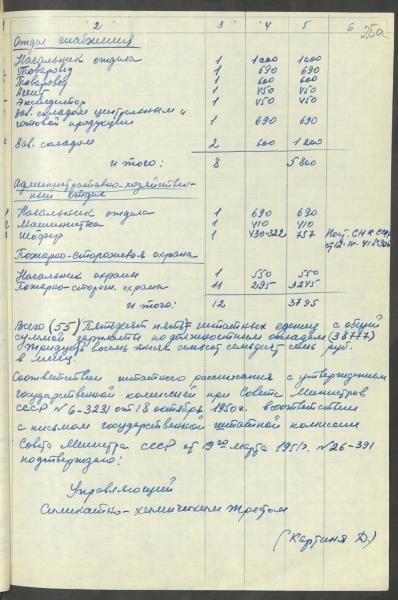 2 3 4 5 6 25а
Отдел снабжения
Начальник отдела 1 1000 1000
Товаровед 1 690 690
Товаровед 1 600 600
Агент 1 450 450
Экспедитор 1 450 450
Зав. складом центральным и
готовой продукции 1 690 690
Зав. складом 2 600 1200
итого: 8 5800
Административно-хозяйствен-
ный отдел
Начальник отдела 1 690 690
Машинистка 1 410 410
Шофер 1 430-322 757 Пост. СНК
Пожарно-сторожевая охрана
Начальник охраны 1 550 550
Пожарно-сторож. охрана 11 295 3245
итого: 12 3795
Всего (55) Пятьдесят пять штатных единиц с общей
суммой зарплаты по должностным окладам (38777)
Тридцать восемь тысяч семьсот семьдесят семь руб.
в месяц.
Соответствие штатного расписания с утверждением
государственной комиссией при Совете Министров
СССР № 6-3231 от 18 октября 1950г. в соответствие
с письмом государственной штатной комиссии
Совета Министра СССР от 19го марта 1951г. № 26-391
подтверждаю:
Управляющий
Силикатно-химическим трестом
(Картиня Д.)